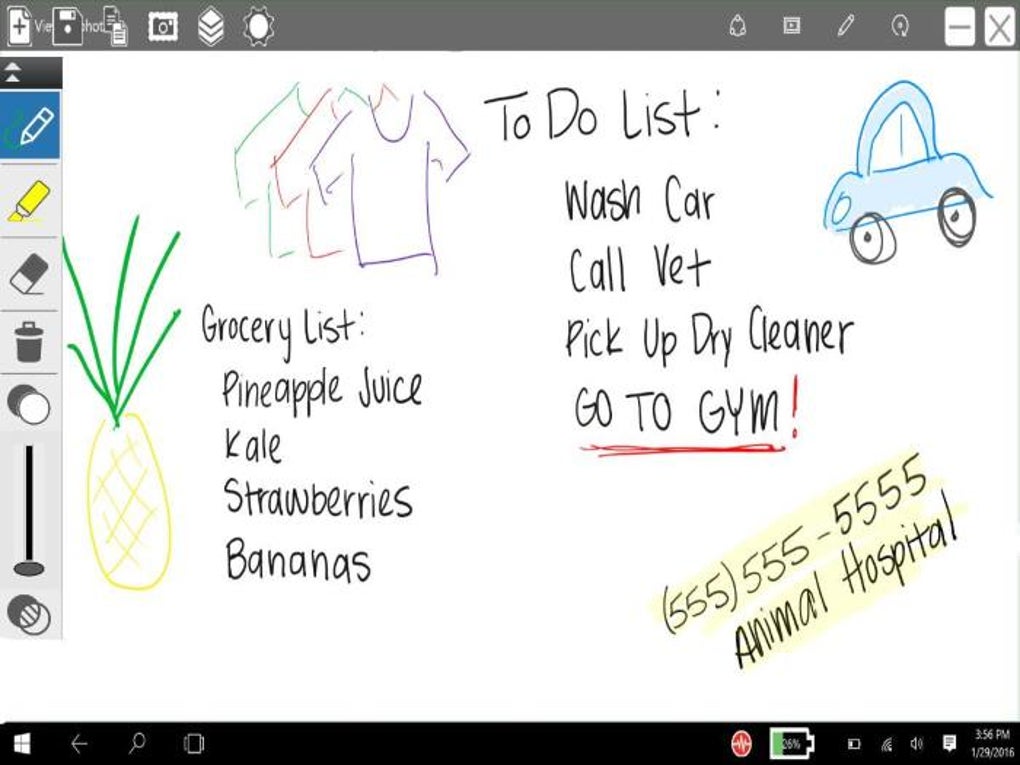 To Do List:
Wash Car
Call Vet
Pick Up Dry Cleaner
GO TO GYM!
Grocery List:
Pineapple Juice
Kale
Strawberries
Bananas
(555)555-5555
Animal Hospital
26%
3:56 PM
1/29/2016